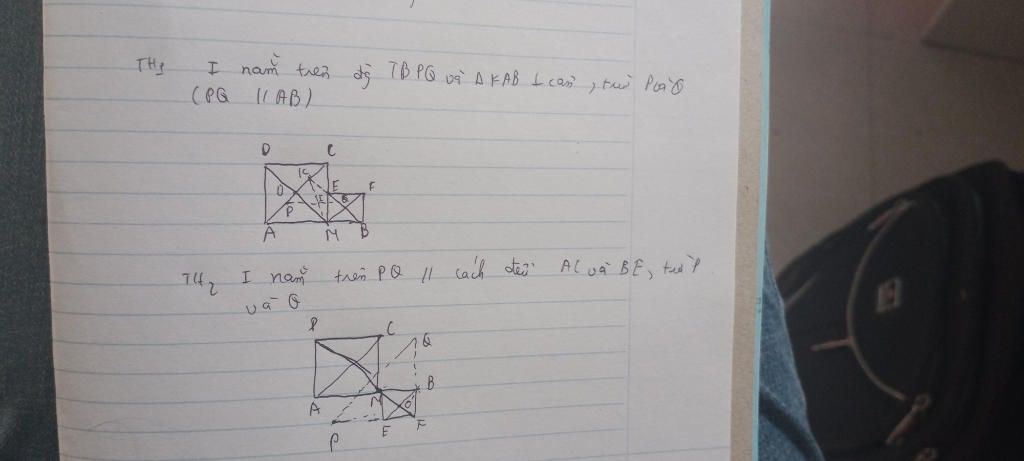 TH1 I nằm trên đg TB PQ và Δ KAB ⊥ cân, trừ P và Q
(PQ // AB)
D C
K
O E F
P I
A M B
TH2 I nằm trên PQ // cách đều AC và BE, trừ P
và Q
C Q
M B
A O
P E F